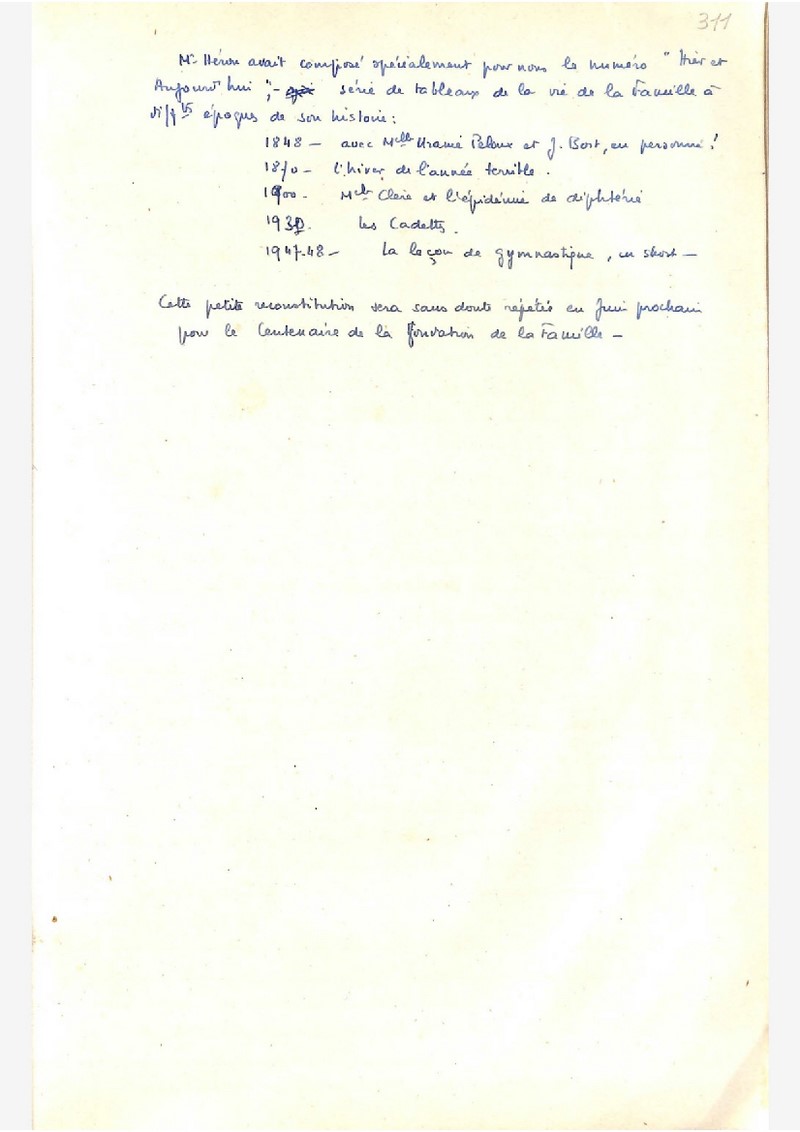 311
Mr Héron avait composé spécialement pour nous le numéro " Hier et
Aujourd'hui ",- série de tableaux de la vie de la Famille à
diffts époques de son histoire :
1848 - avec Melle Uranie Peloux et J. Bost, en personne !
1870 - l'hiver de l'année terrible .
1900 - Melle Claire et l'épidémie de diphtérie
193 . les Cadettes .
1947-48 - La leçon de gymnastique , en short -
Cette petite reconstitution sera sans doute répétée en Juin prochain
pour le Centenaire de la fondation de la Famille -